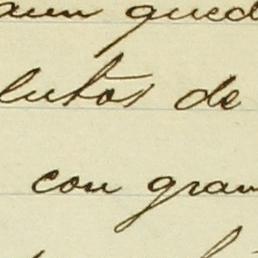 aun qued
lutos de
con gran